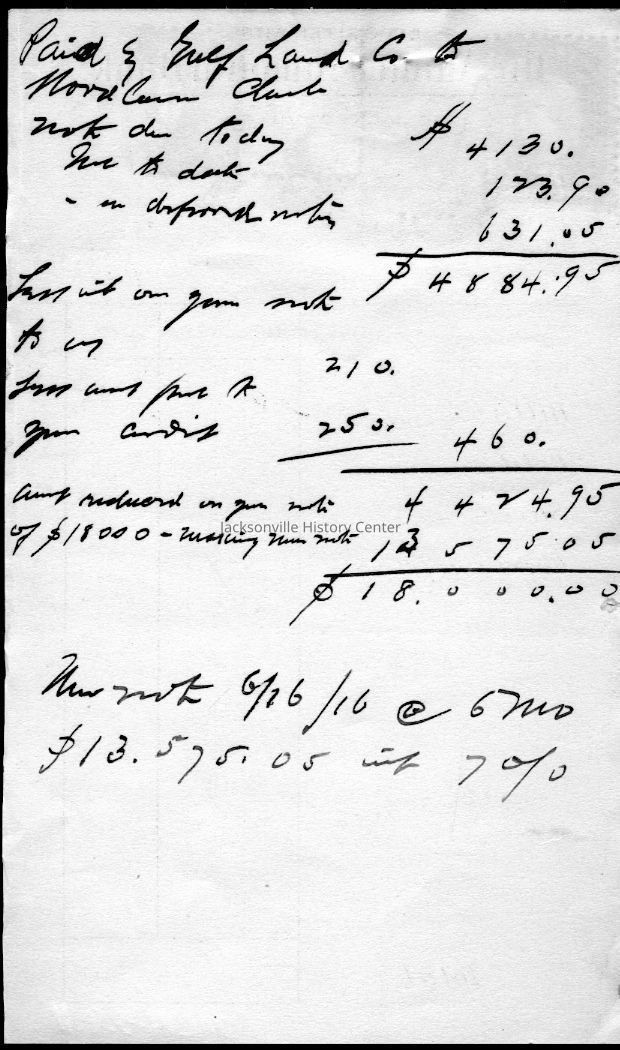 Paid by Gulf Land Co. to
Woodlawn Club
note due today $ 4130.
Int to date 123.90
" on deferred notes 631.05
$ 4884.95
Less int on your note
to us 210.
Less amt put to
your credit 250. 460.
Amt reduced on your note 4424.95
of $18000 - making new note 13575.05
$ 18.000.00
New note 6/26/16 @ 6 mo
$13.575.05 int 7 o/o
Jacksonville History Center